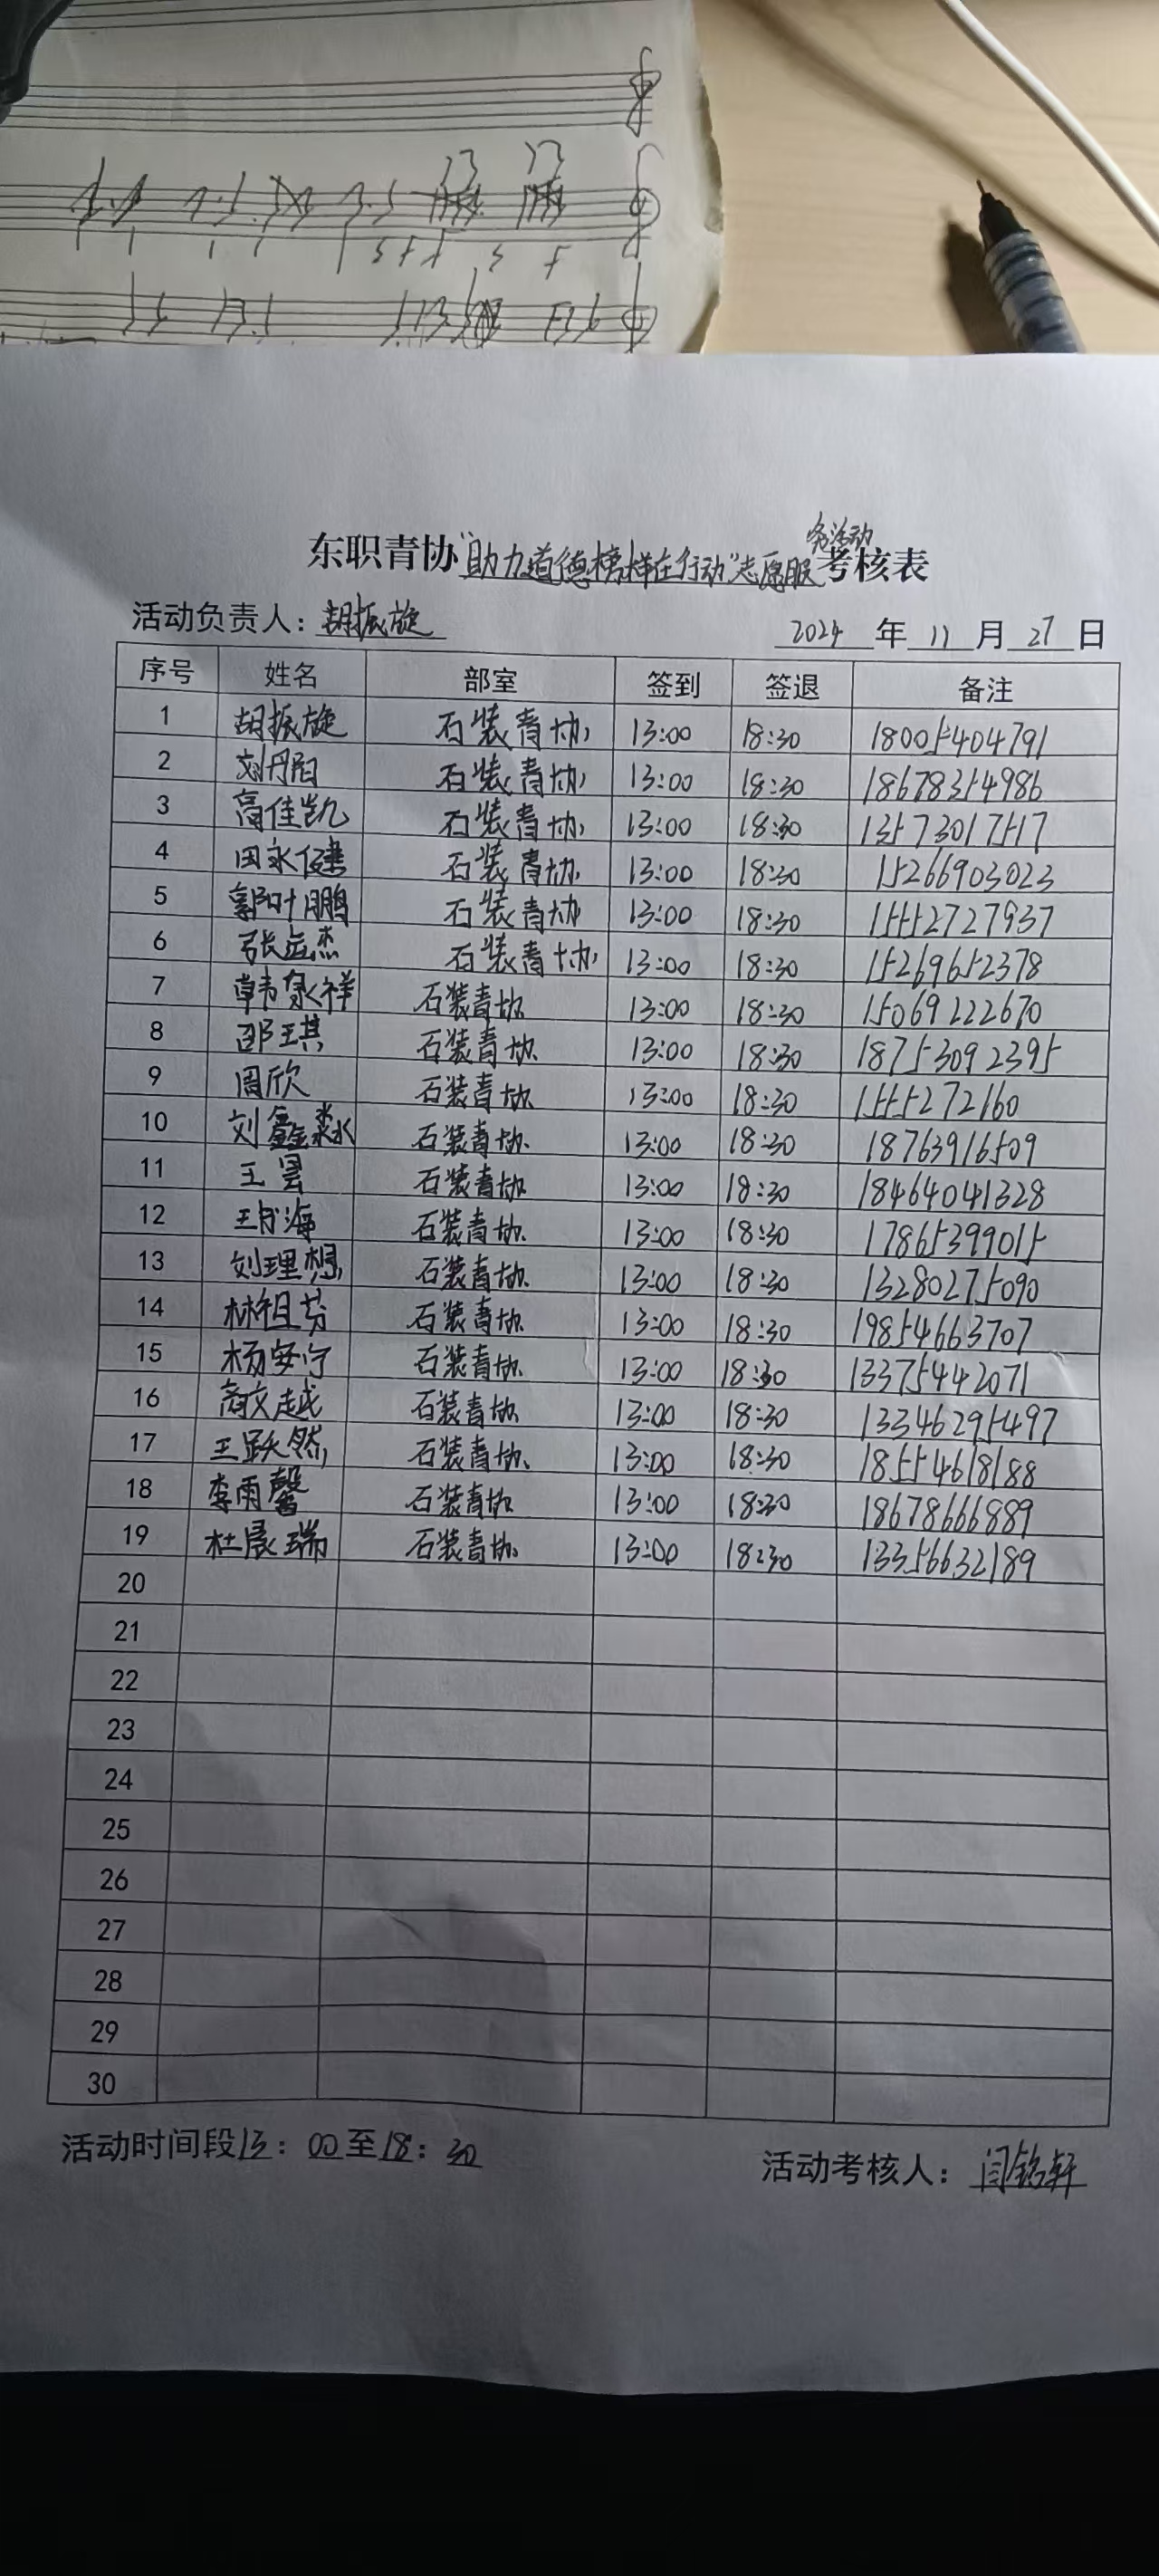 务活动
东职青协“助力道德榜样在行动”志愿服考核表
活动负责人：胡振旋 2024年11月27日
序号 姓名 部室 签到 签退 备注
1 胡振旋 石装青协 13:00 18:30 18005404791
2 刘丹阳 石装青协 13:00 18:30 18678354986
3 高佳凯 石装青协 13:00 18:30 13573017517
4 田永健 石装青协 13:00 18:30 15266903023
5 郭叶鹏 石装青协 13:00 18:30 15552727937
6 张孟杰 石装青协 13:00 18:30 15269652378
7 韩永祥 石装青协 13:00 18:30 15069222670
8 邵琪 石装青协 13:00 18:30 18753092395
9 周欣 石装青协 13:00 18:30 1555272160
10 刘鑫淼 石装青协 13:00 18:30 18763916509
11 王昙 石装青协 13:00 18:30 18464041328
12 石装青协 13:00 18:30 17865399015
13 刘理想 石装青协 13:00 18:30 13280275090
14 林祖芬 石装青协 13:00 18:30 19854663707
15 杨安宁 石装青协 13:00 18:30 13375442071
16 高文越 石装青协 13:00 18:30 13346295497
17 王跃然 石装青协 13:00 18:30 18554618188
18 李雨馨 石装青协 13:00 18:30 18678666889
19 杜晨瑞 石装青协 13:00 18:30 13356632189
20
21
22
23
24
25
26
27
28
29
30
活动时间段13：00至18：30 活动考核人：闫铭轩